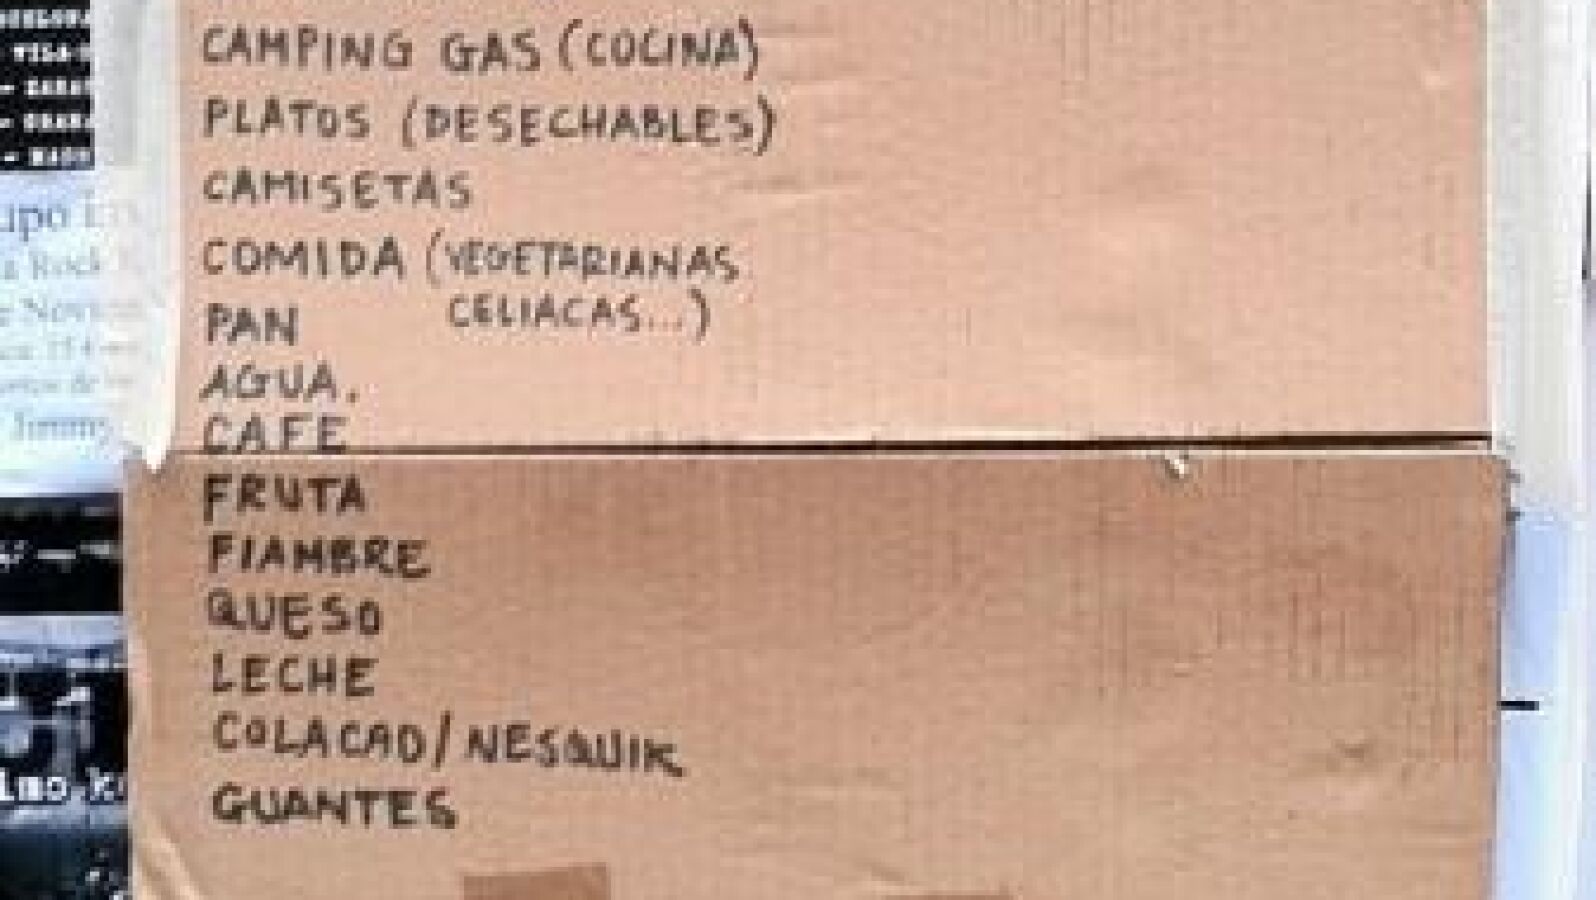 CAMPING GAS (COCINA)
PLATOS (DESECHABLES)
CAMISETAS
COMIDA (VEGETARIANAS
CELIACAS...)
PAN
AGUA.
CAFE
FRUTA
FIAMBRE
QUESO
LECHE
COLACAO/NESQUIK
GUANTES
upo
a Rock
Jimmy